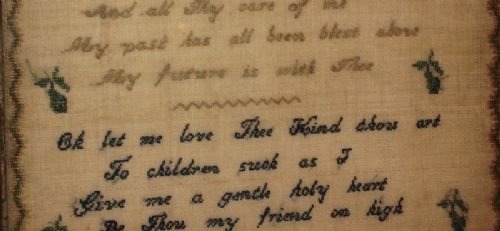 And all Thy care of me
My past has all been blest above
My future is with Thee
Oh let me love Thee Kind thou art
To children such as I
Give me a gentle holy heart
Be Thou my friend on high